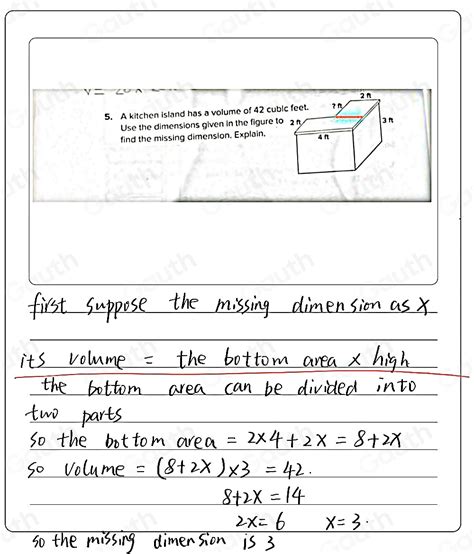 5. A kitchen island has a volume of 42 cubic feet.
Use the dimensions given in the figure to
find the missing dimension. Explain.
2 ft
? ft
2 ft
3 ft
4 ft
first suppose the missing dimension as x
its volume = the bottom area x high
the bottom area can be divided into
two parts
so the bottom area = 2x4+2x = 8+2x
so volume = (8+2x)x3 = 42.
8+2x = 14
2x = 6 x = 3.
so the missing dimension is 3